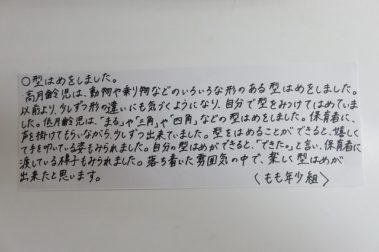 ○型はめをしました。
高月齢児は、動物や乗り物などのいろいろな形のある型はめをしました。
以前より、少しずつ形の違いにも気づくようになり、自分で型をみつけてはめていま
した。低月齢児は、「まる」や「三角」や「四角」などの型はめをしました。保育者に、
声を掛けてもらいながら、少しずつ出来ていました。型をはめることができると、嬉しく
て手を叩いている姿もみられました。自分の型はめができると、「できた。」と言い、保育者に
渡している様子もみられました。落ち着いた雰囲気の中で、楽しく型はめが
出来たと思います。
〈もも年少組〉